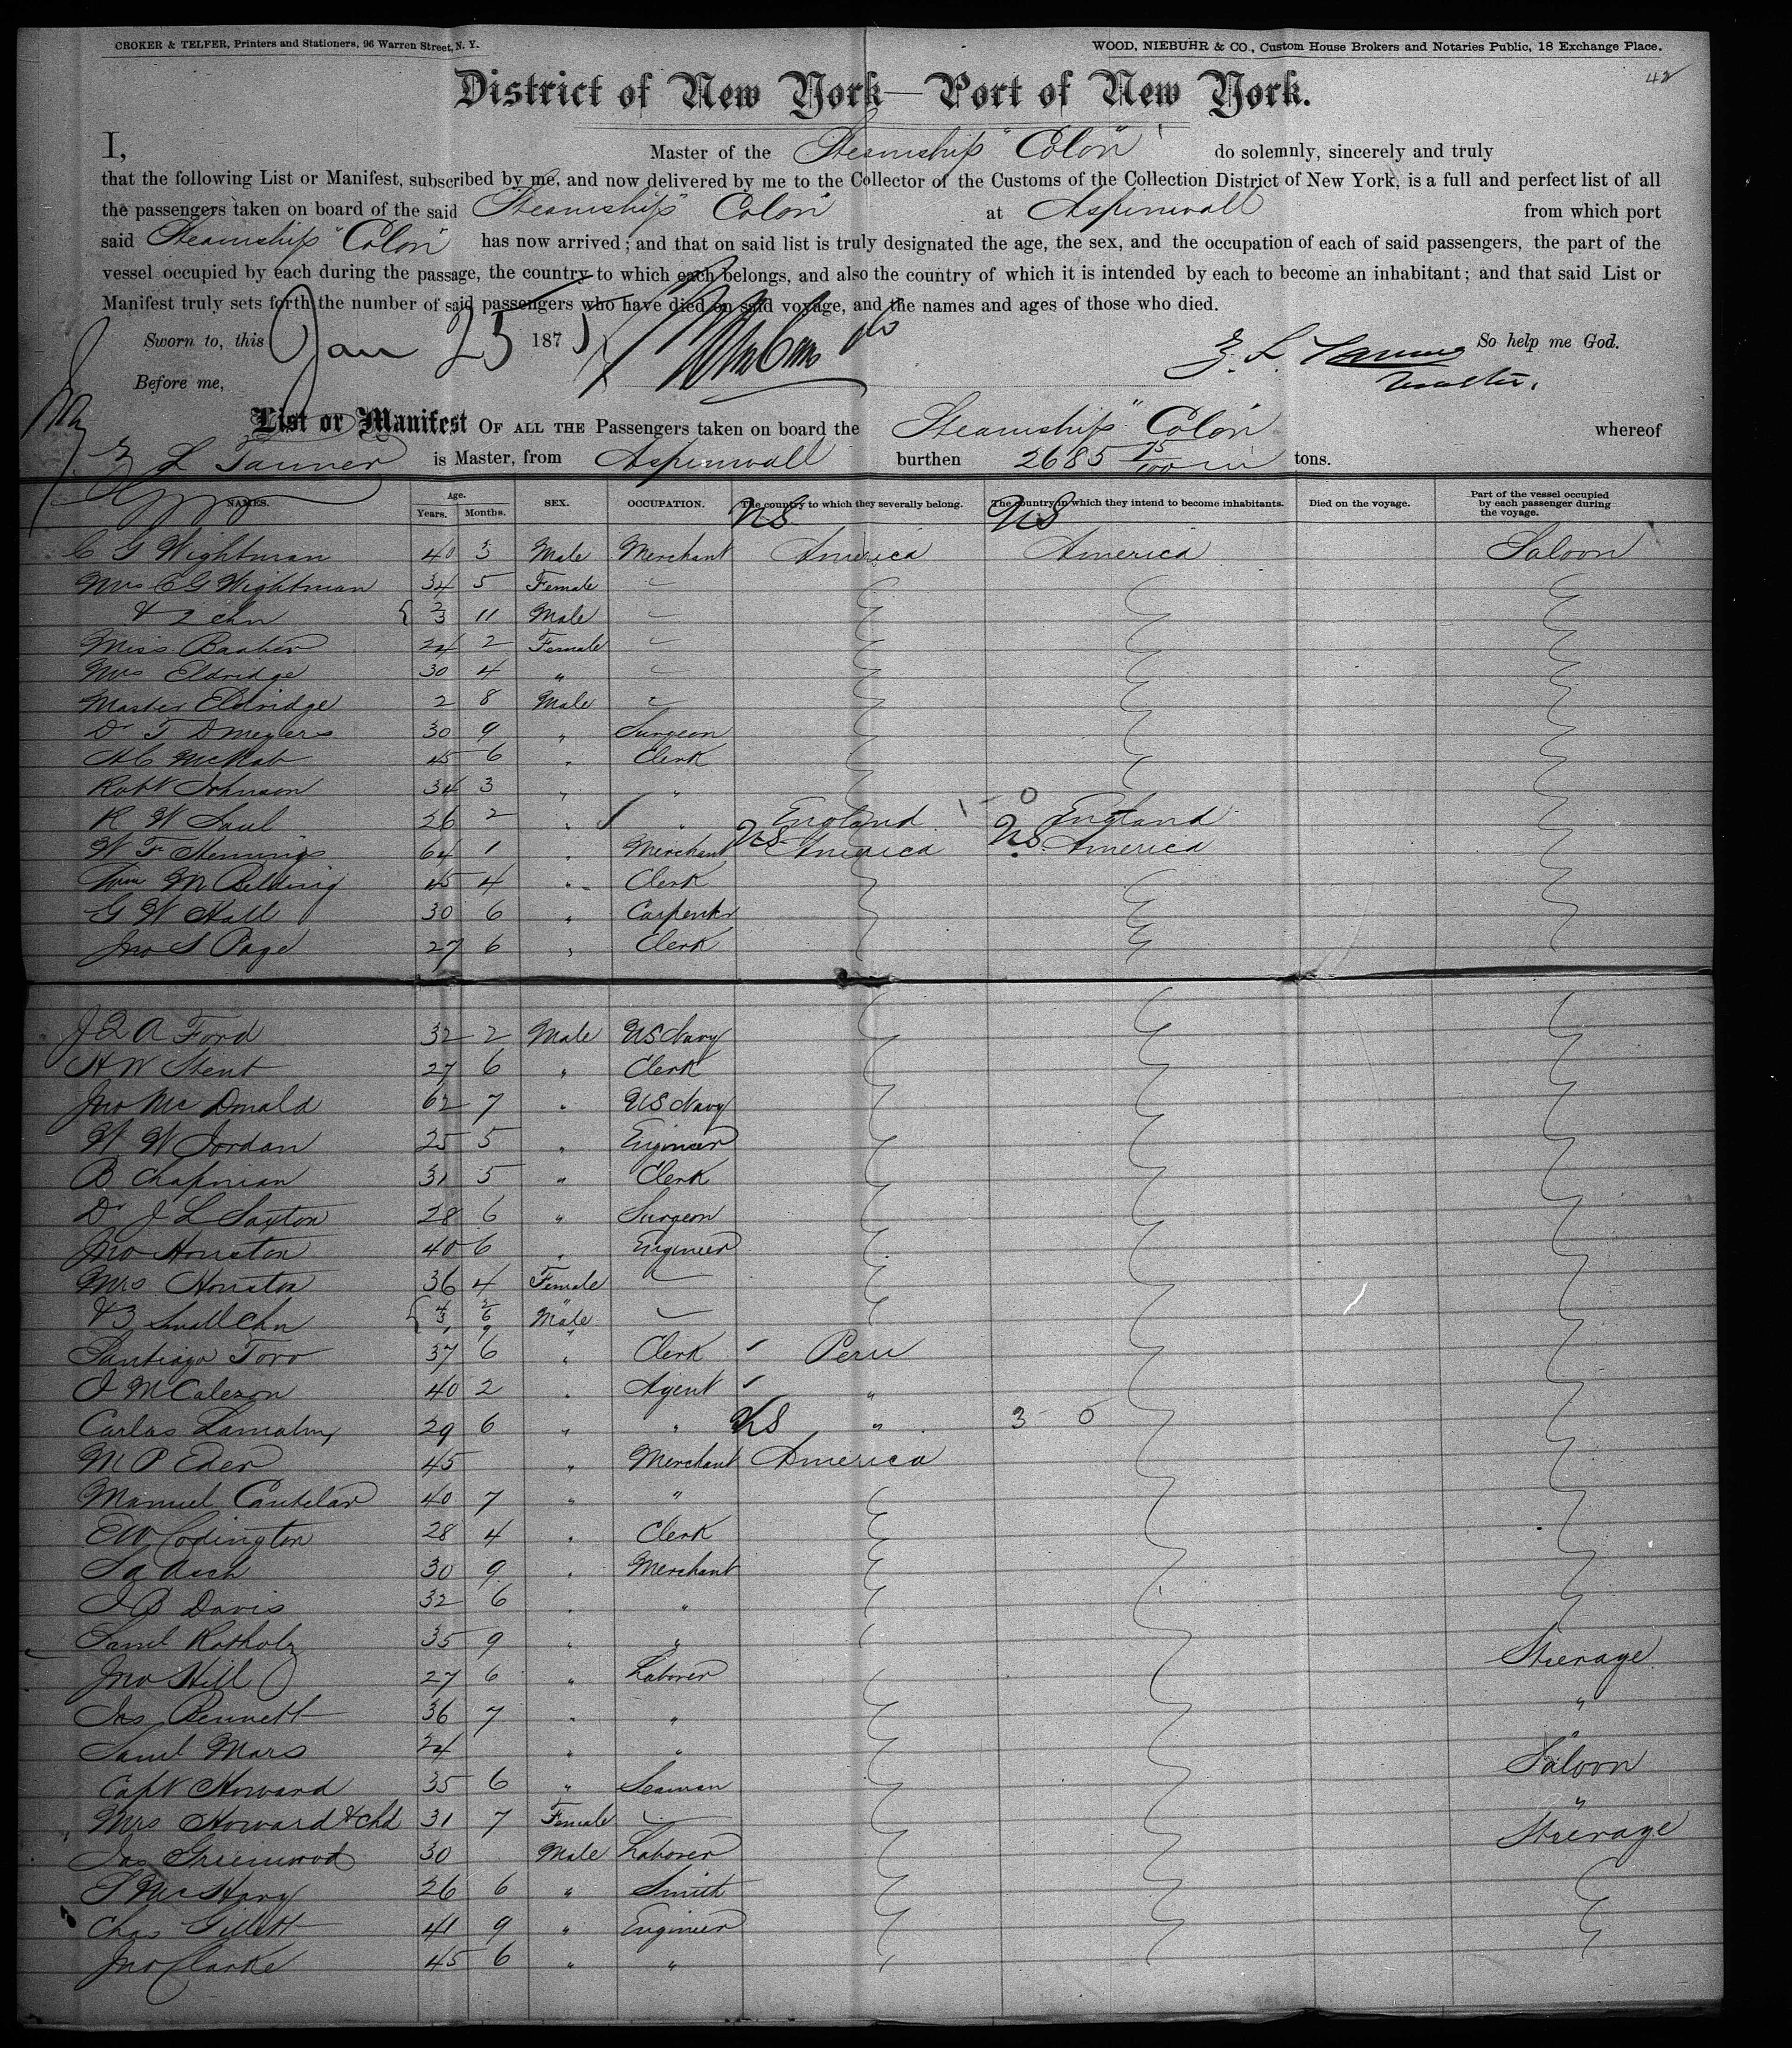 CROKER & TELFER, Printers and Stationers, 96 Warren Street, N. Y.
WOOD, NIEBUHR & CO., Custom House Brokers and Notaries Public, 18 Exchange Place.
42
District of New York—Port of New York.
I, Master of the Steamship "Colon" do solemnly, sincerely and truly
that the following List or Manifest, subscribed by me, and now delivered by me to the Collector of the Customs of the Collection District of New York, is a full and perfect list of all
the passengers taken on board of the said Steamship "Colon" at Aspinwall from which port
said Steamship "Colon" has now arrived; and that on said list is truly designated the age, the sex, and the occupation of each of said passengers, the part of the
vessel occupied by each during the passage, the country to which each belongs, and also the country of which it is intended by each to become an inhabitant; and that said List or
Manifest truly sets forth the number of said passengers who have died on said voyage, and the names and ages of those who died.
Sworn to, this Jan 25 187 So help me God.
Before me, Z. L. Tanner Master.
List or Manifest OF ALL THE Passengers taken on board the Steamship "Colon" whereof
Z L Tanner is Master, from Aspinwall burthen 2685 75/100 tons.
NAMES. Age. Years. Months. SEX. OCCUPATION. The country to which they severally belong. The country in which they intend to become inhabitants. Died on the voyage. Part of the vessel occupied by each passenger during the voyage.
US US
C G Wightman 40 3 Male Merchant America America Saloon
Mrs C G Wightman 34 5 Female
& 2 chn 2 3 11 Male
Miss Barber 24 2 Female
Mrs Eldridge 30 4 "
Master Eldridge 2 8 Male
Dr T D Meyers 30 9 " Surgeon
H C McNab 45 6 " Clerk
Robt Johnson 34 3 " "
R W Saul 26 2 " " England 1 - 0 England
W F Hennings 64 1 " Merchant US America US America
Wm M Belding 45 4 " Clerk
G W Hall 30 6 " Carpenter
Jno S Page 27 6 " Clerk
J Q A Ford 32 2 Male US Navy
H W Stent 27 6 " Clerk
Jno McDonald 62 7 " US Navy
W W Jordan 25 5 " Engineer
B Chapman 31 5 " Clerk
Dr J L Sayton 28 6 " Surgeon
Jno Houston 40 6 " Engineer
Mrs Houston 36 4 Female
& 3 Small Chn 4 3 1 2 6 9 " Male "
Santiago Toro 37 6 " Clerk Peru
J McCalezon 40 2 " Agent "
Carlos 29 6 " " " 3 0
M P Eder 45 " Merchant US America
Manuel Cantelar 40 7 " "
E W Codington 28 4 " Clerk
30 9 " Merchant
J B Davis 32 6 " "
Saml Rotholz 35 9 " "
Jno Hill 27 6 " Laborer Steerage
Jas Bennett 36 7 " " "
Saml Mars 24 " " "
Capt Howard 35 6 " Seaman Saloon
Mrs Howard & chd 31 7 Female "
Jas Greenwood 30 Male Laborer Steerage
S McHarg 26 6 " Smith
Chas Gillett 41 9 " Engineer
Jno Clarke 45 6 " "